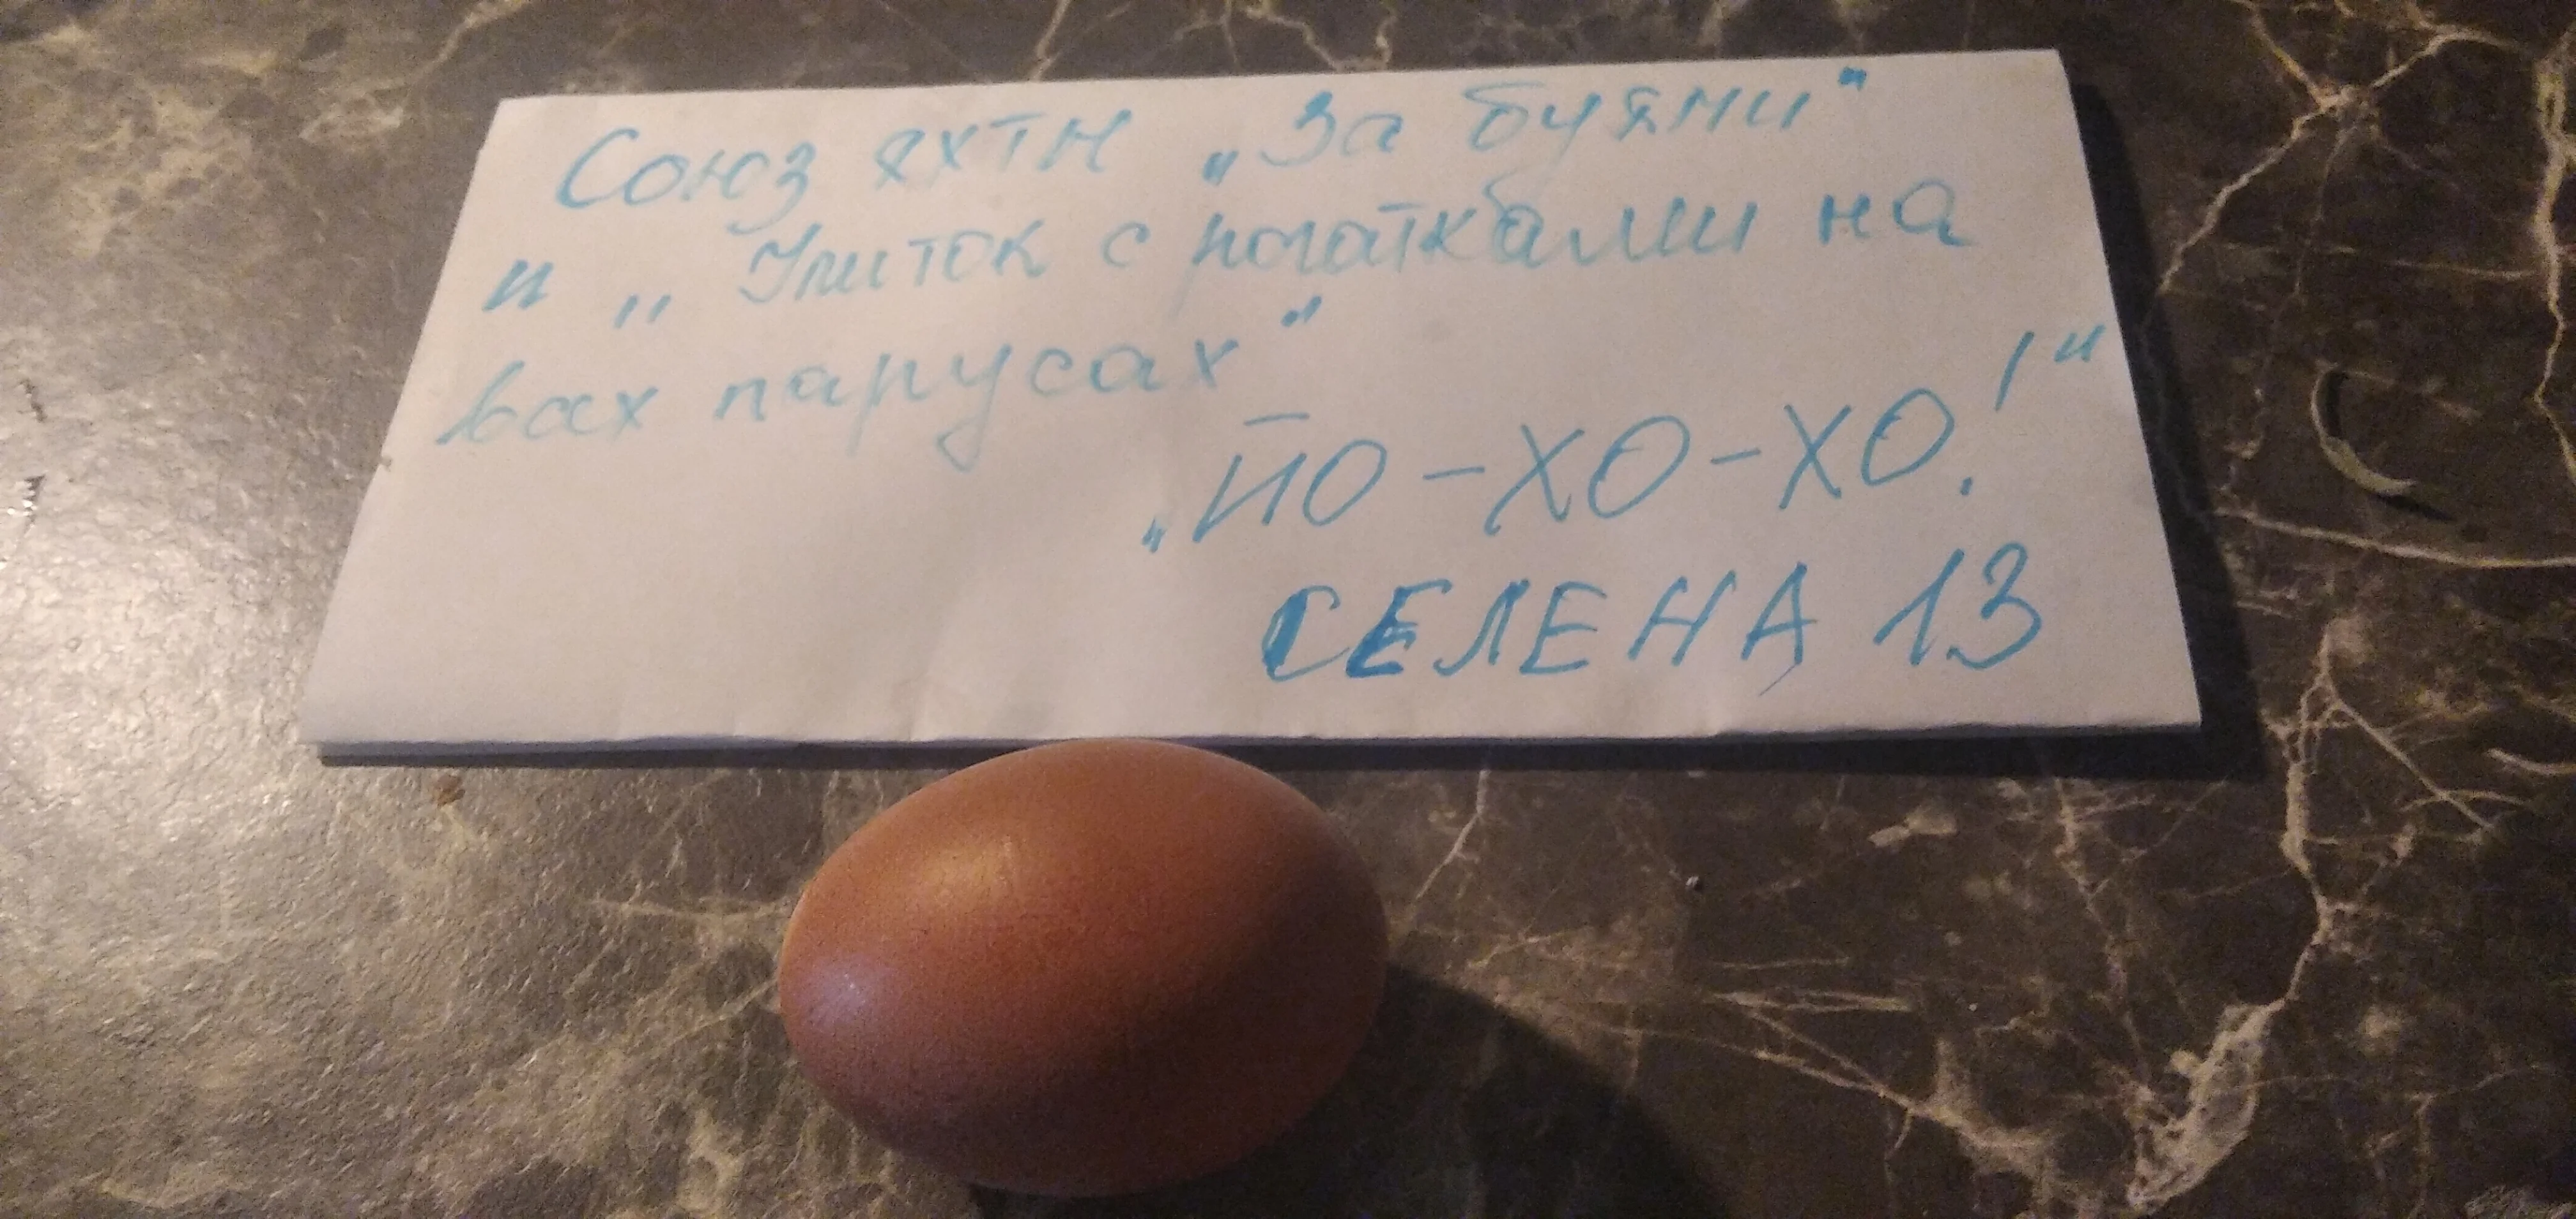 Союз яхтн „За буями"
и „Улиток с рогатками на
всех парусах"
„ЙО-ХО-ХО!"
СЕЛЕНА 13